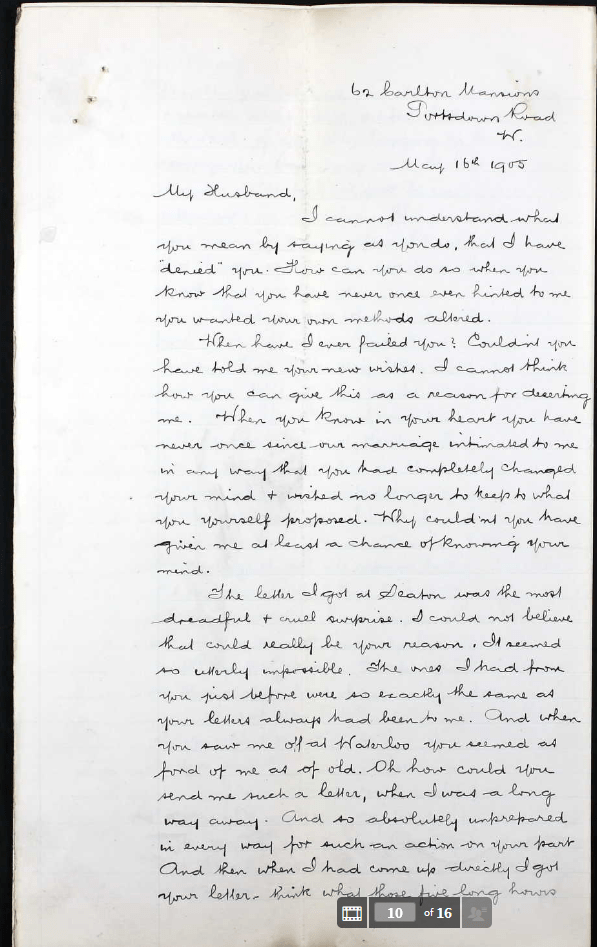 62 Carlton Mansions
Portsdown Road
W.
May 16th 1905
My Husband,
I cannot understand what
you mean by saying as you do, that I have
"denied" you. How can you do so when you
know that you have never once even hinted to me
you wanted your own methods altered.
When have I ever failed you? Couldn't you
have told me your new wishes. I cannot think
how you can give this as a reason for deserting
me. When you know in your heart you have
never once since our marriage intimated to me
in any way that you had completely changed
your mind + wished no longer to keep to what
you yourself proposed. Why couldn't you have
given me at least a chance of knowing your
mind.
The letter I got at Seaton was the most
dreadful + cruel surprise. I could not believe
that could really be your reason. It seemed
so utterly impossible. The ones I had from
you just before were so exactly the same as
your letters always had been to me. And when
you saw me off at Waterloo you seemed as
fond of me as of old. Oh how could you
send me such a letter, when I was a long
way away. And so absolutely unprepared
in every way for such an action on your part
And then when I had come up directly I got
your letter - think what those five long hours
10 of 16